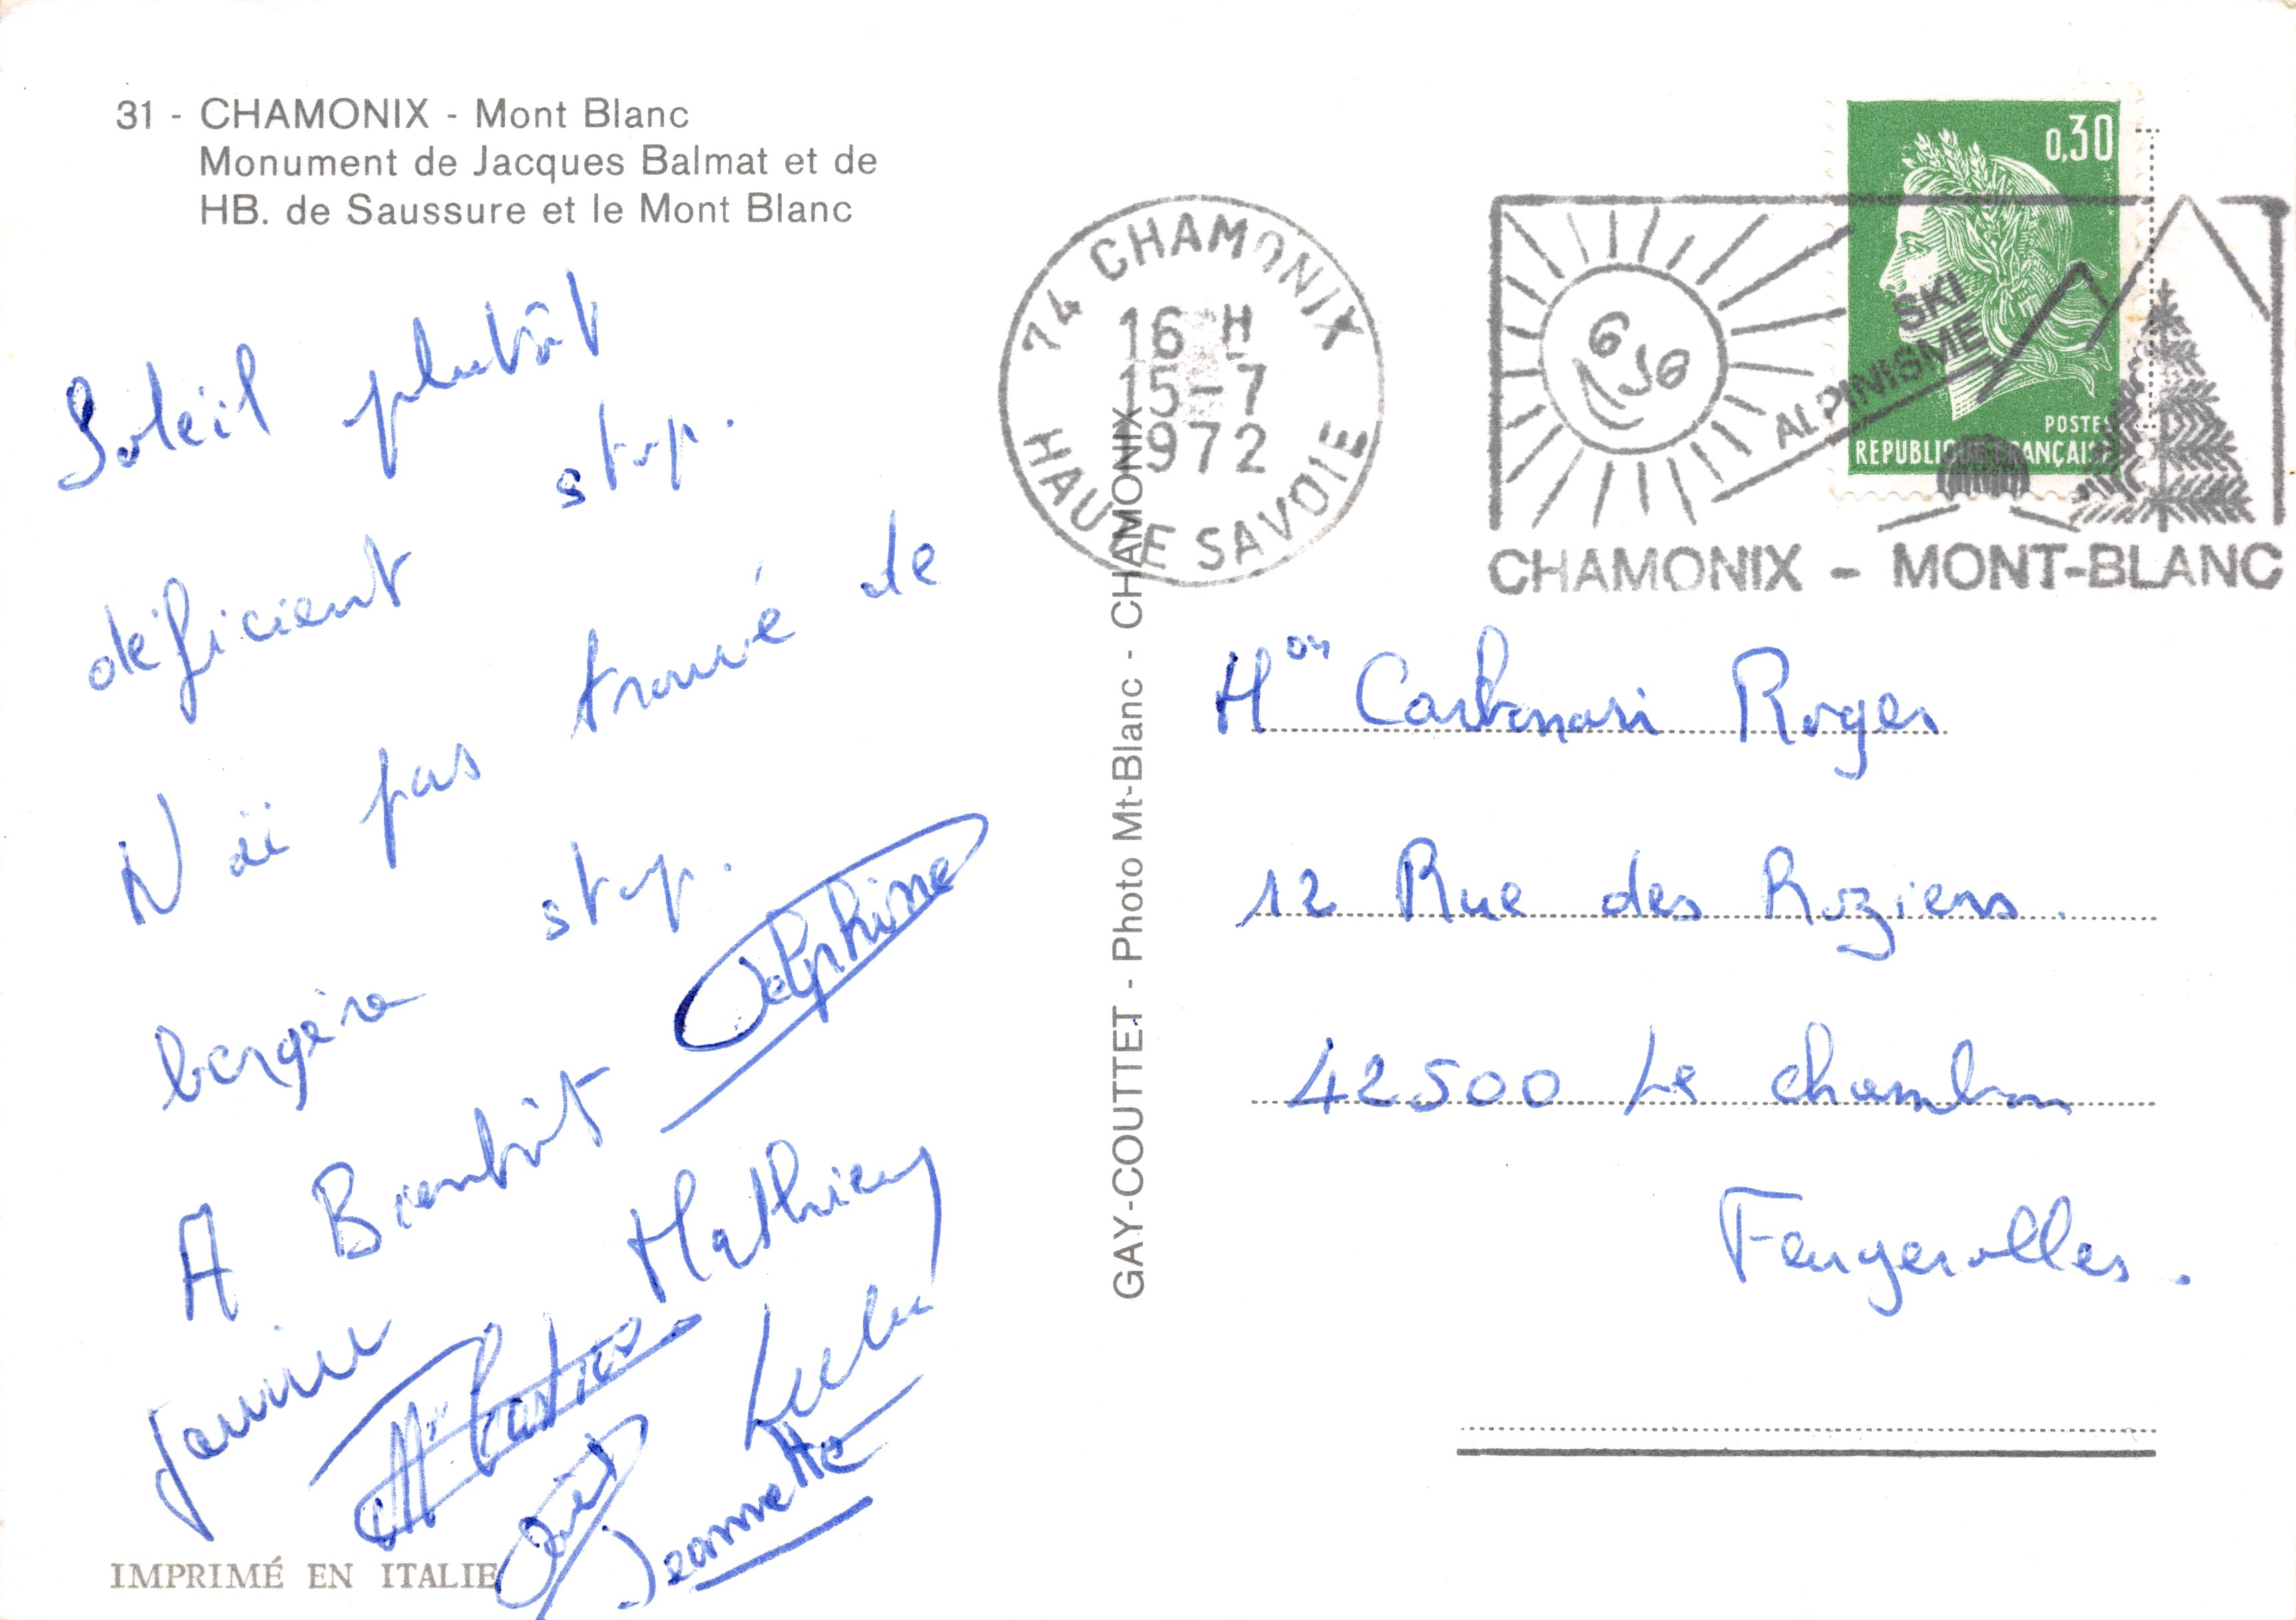 31 - CHAMONIX - Mont Blanc
Monument de Jacques Balmat et de
HB. de Saussure et le Mont Blanc
Soleil plutôt
déficient stop.
N'ai pas trouvé de
bergère stop.
A Bientôt
Delphine
Mathieu
Lulu
Jeannette
IMPRIMÉ EN ITALIE
GAY-COUTTET - Photo Mt-Blanc - CHAMONIX
74 CHAMONIX
16 H
15-7
1972
HAUTE SAVOIE
0,30
POSTES
REPUBLIQUE FRANÇAISE
SKI
ALPINISME
CHAMONIX - MONT-BLANC
Mon Carbonari Roger
12 Rue des Roziers.
42500 Le Chambon
Feugerolles.